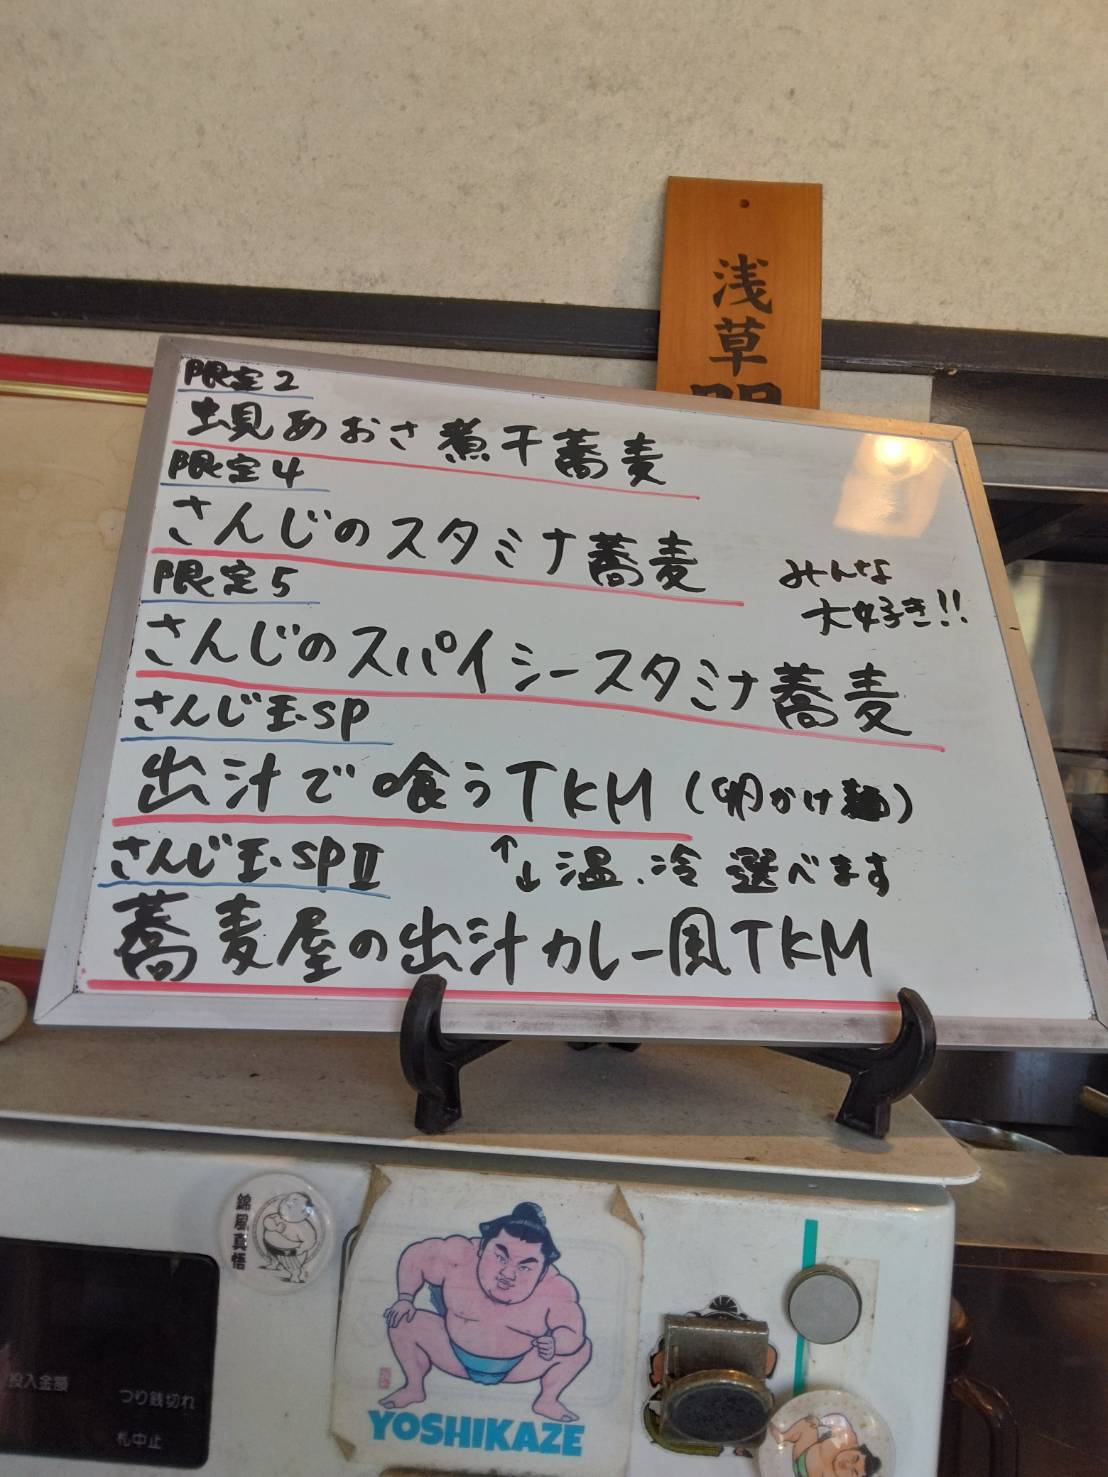 浅草
限定2
蜆あおさ煮干蕎麦
限定4
さんじのスタミナ蕎麦
みんな
大好き!!
限定5
さんじのスパイシースタミナ蕎麦
さんじ玉.SP
出汁で喰うTKM(卵かけ麺)
さんじ玉.SPⅡ
↑↓温、冷 選べます
蕎麦屋の出汁カレー風TKM
錦風真悟
YOSHIKAZE
投入金額
つり銭切れ
札中止